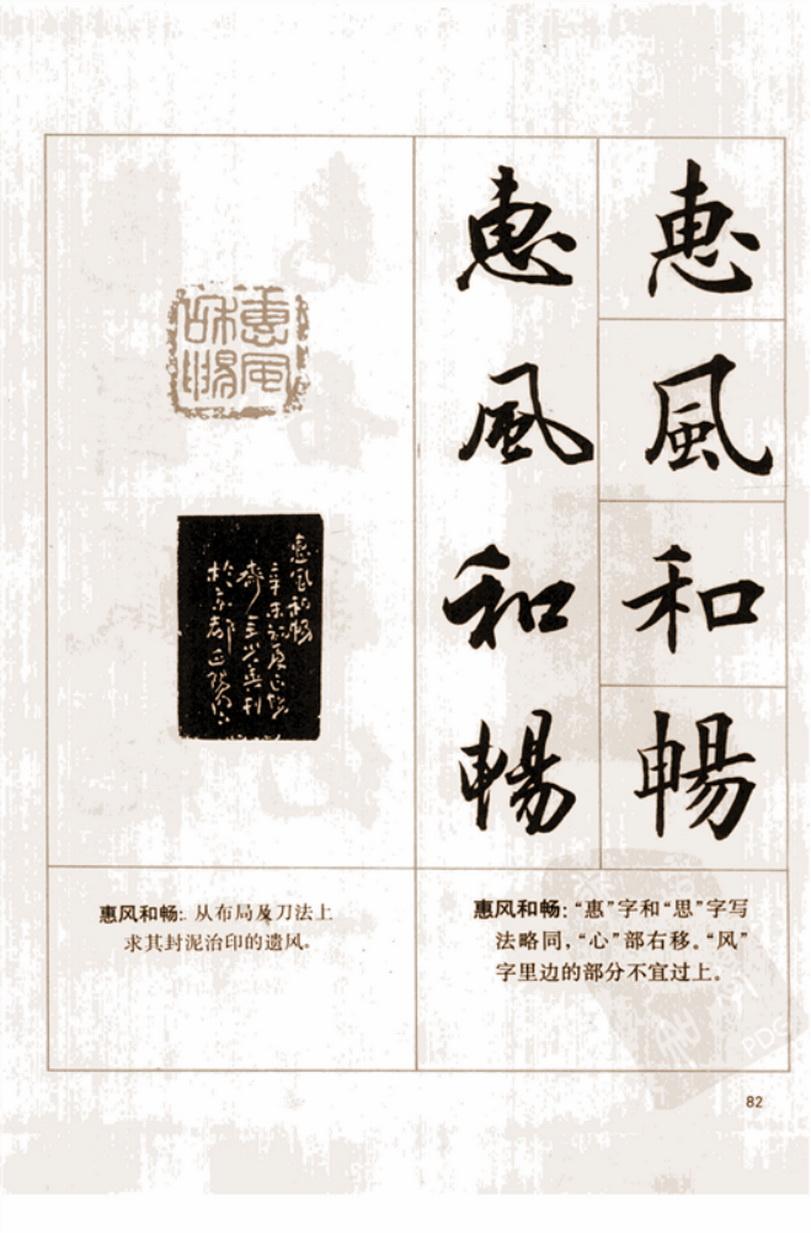 惠
風
和
暢
惠
風
和
暢
惠風
和暢
惠風和暢
於京都
惠风和畅:“惠”字和“思”字写
法略同,“心”部右移。“风”
字里边的部分不宜过上。
惠风和畅:从布局及刀法上
求其封泥治印的遗风。
82
PDG